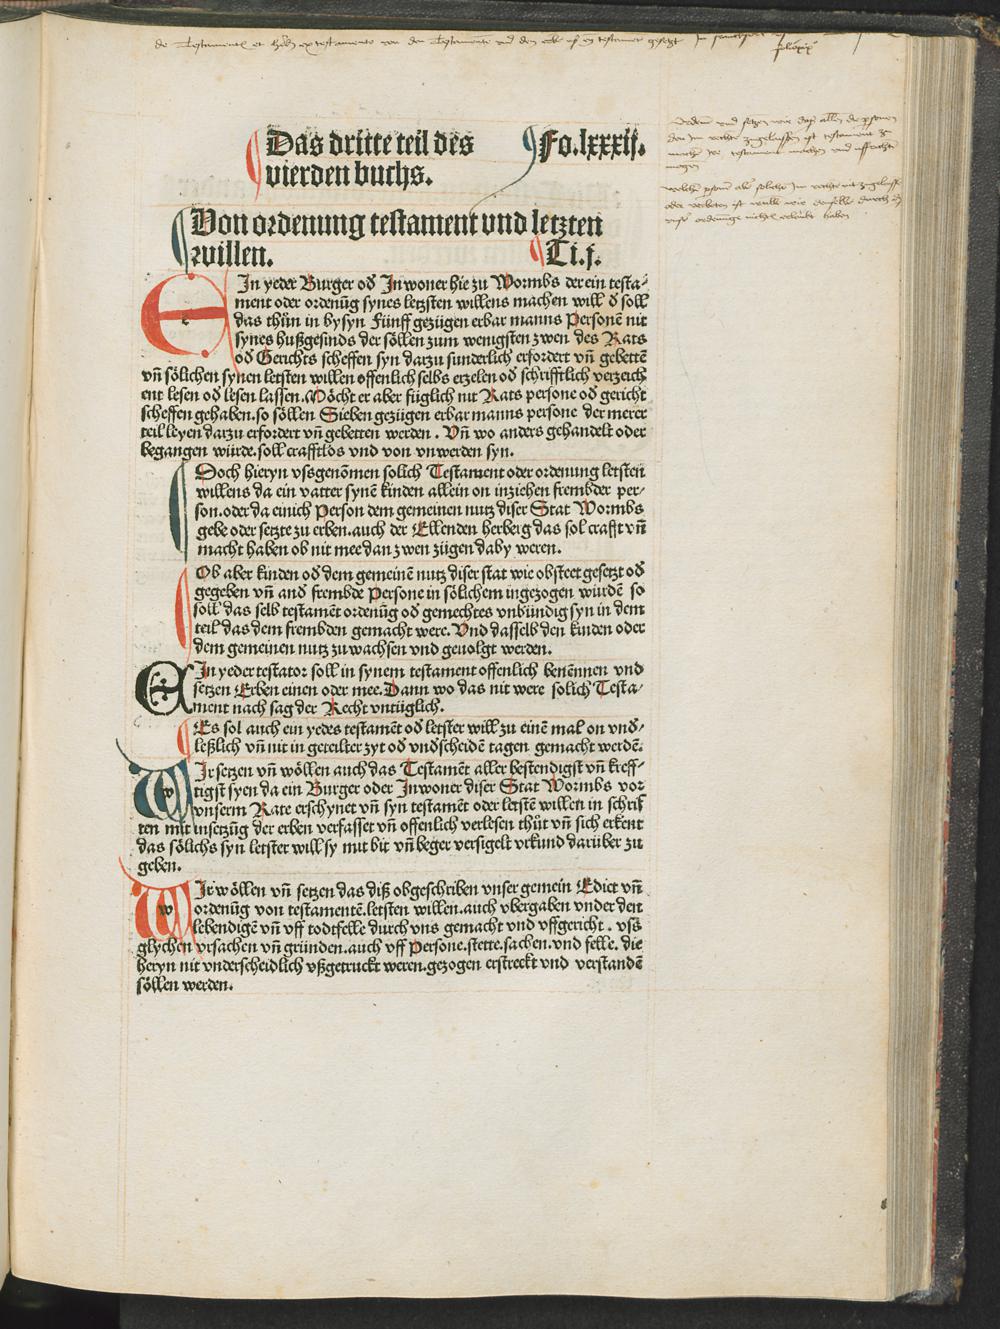 Das dritte teil des Fo.lxxxij.
vierden buchs.
Von ordenung testament vnd letzten
willen. Ti.j.
EIn yeder Burger od̄ Inwoner hie zu Wormbs der ein testa⸗
ment oder ordenūg synes letzsten willens machen will d̄ soll
das thůn in bysyn Fünff gezügen erbar manns Personē nit
synes hußgesinds der söllen zum wenigsten zwen des Rats
od̄ Gerichts scheffen syn darzu sunderlich erfordert vn̄ gebettē
vn̄ sölichen synen letsten willen offenlich selbs erzelen od̄ schrifftlich verzeich
ent lesen od̄ lesen lassen. Möcht er aber füglich nit Rats persone od̄ gericht
scheffen gehaben. so söllen Sieben gezügen erbar manns persone der merer
teil leyen darzu erfordert vn̄ gebetten werden. Vn̄ wo anders gehandelt oder
begangen würde. soll crafftlos vnd von vnwerden syn.
Doch hieryn vssgenōmen solich Testament oder ordenung letsten
willens da ein vatter synē kinden allein on inziehen frembder per⸗
son. oder da einich Person dem gemeinen nutz diser Stat Wormbs
gebe oder setzte zu erben. auch der Ellenden herberg das sol crafft vn̄
macht haben ob nit mee dan zwen zügen daby weren.
Ob aber kinden od̄ dem gemeinē nutz diser stat wie obsteet gesetzt od̄
gegeben vn̄ and̄ frembde Persone in sölichem ingezogen würdē so
soll das selb testamēt ordenūg od̄ gemechtes vnbündig syn in dem
teil das dem frembden gemacht were. Vnd dasselb den kinden oder
dem gemeinen nutz zu wachsen vnd geuolgt werden.
EIn yeder testator soll in synem testament offenlich benēnnen vnd
setzen Erben einen oder mee. Dann wo das nit were solich Testa⸗
ment nach sag der Recht vntüglich.
Es sol auch ein yedes testamēt od̄ letster will zu einē mal on vnd̄⸗
leßlich vn̄ nit in geteilter zyt od̄ vnd̄scheidē tagen gemacht werdē.
WIr setzen vn̄ wöllen auch das Testamēt aller bestendigst vn̄ kreff⸗
tigst syen da ein Burger oder Inwoner diser Stat Wormbs vor
vnserm Rate erschynet vn̄ syn testamēt oder letstē willen in schrif
ten mit insetzūg der erben verfasset vn̄ offenlich verlesen thůt vn̄ sich erkent
das sölichs syn letster will sy mit bit vn̄ beger versigelt vrkund darüber zu
geben.
WIr wöllen vn̄ setzen das diß obgeschriben vnser gemein Edict vn̄
ordenūg von testamentē. letsten willen. auch vbergaben vnder den
lebendigē vn̄ vff todtfelle durch vns gemacht vnd vffgericht. vss
glychen vrsachen vn̄ gründen. auch vff Persone. stette. sachen. vnd felle. die
heryn nit vnderscheidlich vßgetruckt weren. gezogen erstreckt vnd verstandē
söllen werden.